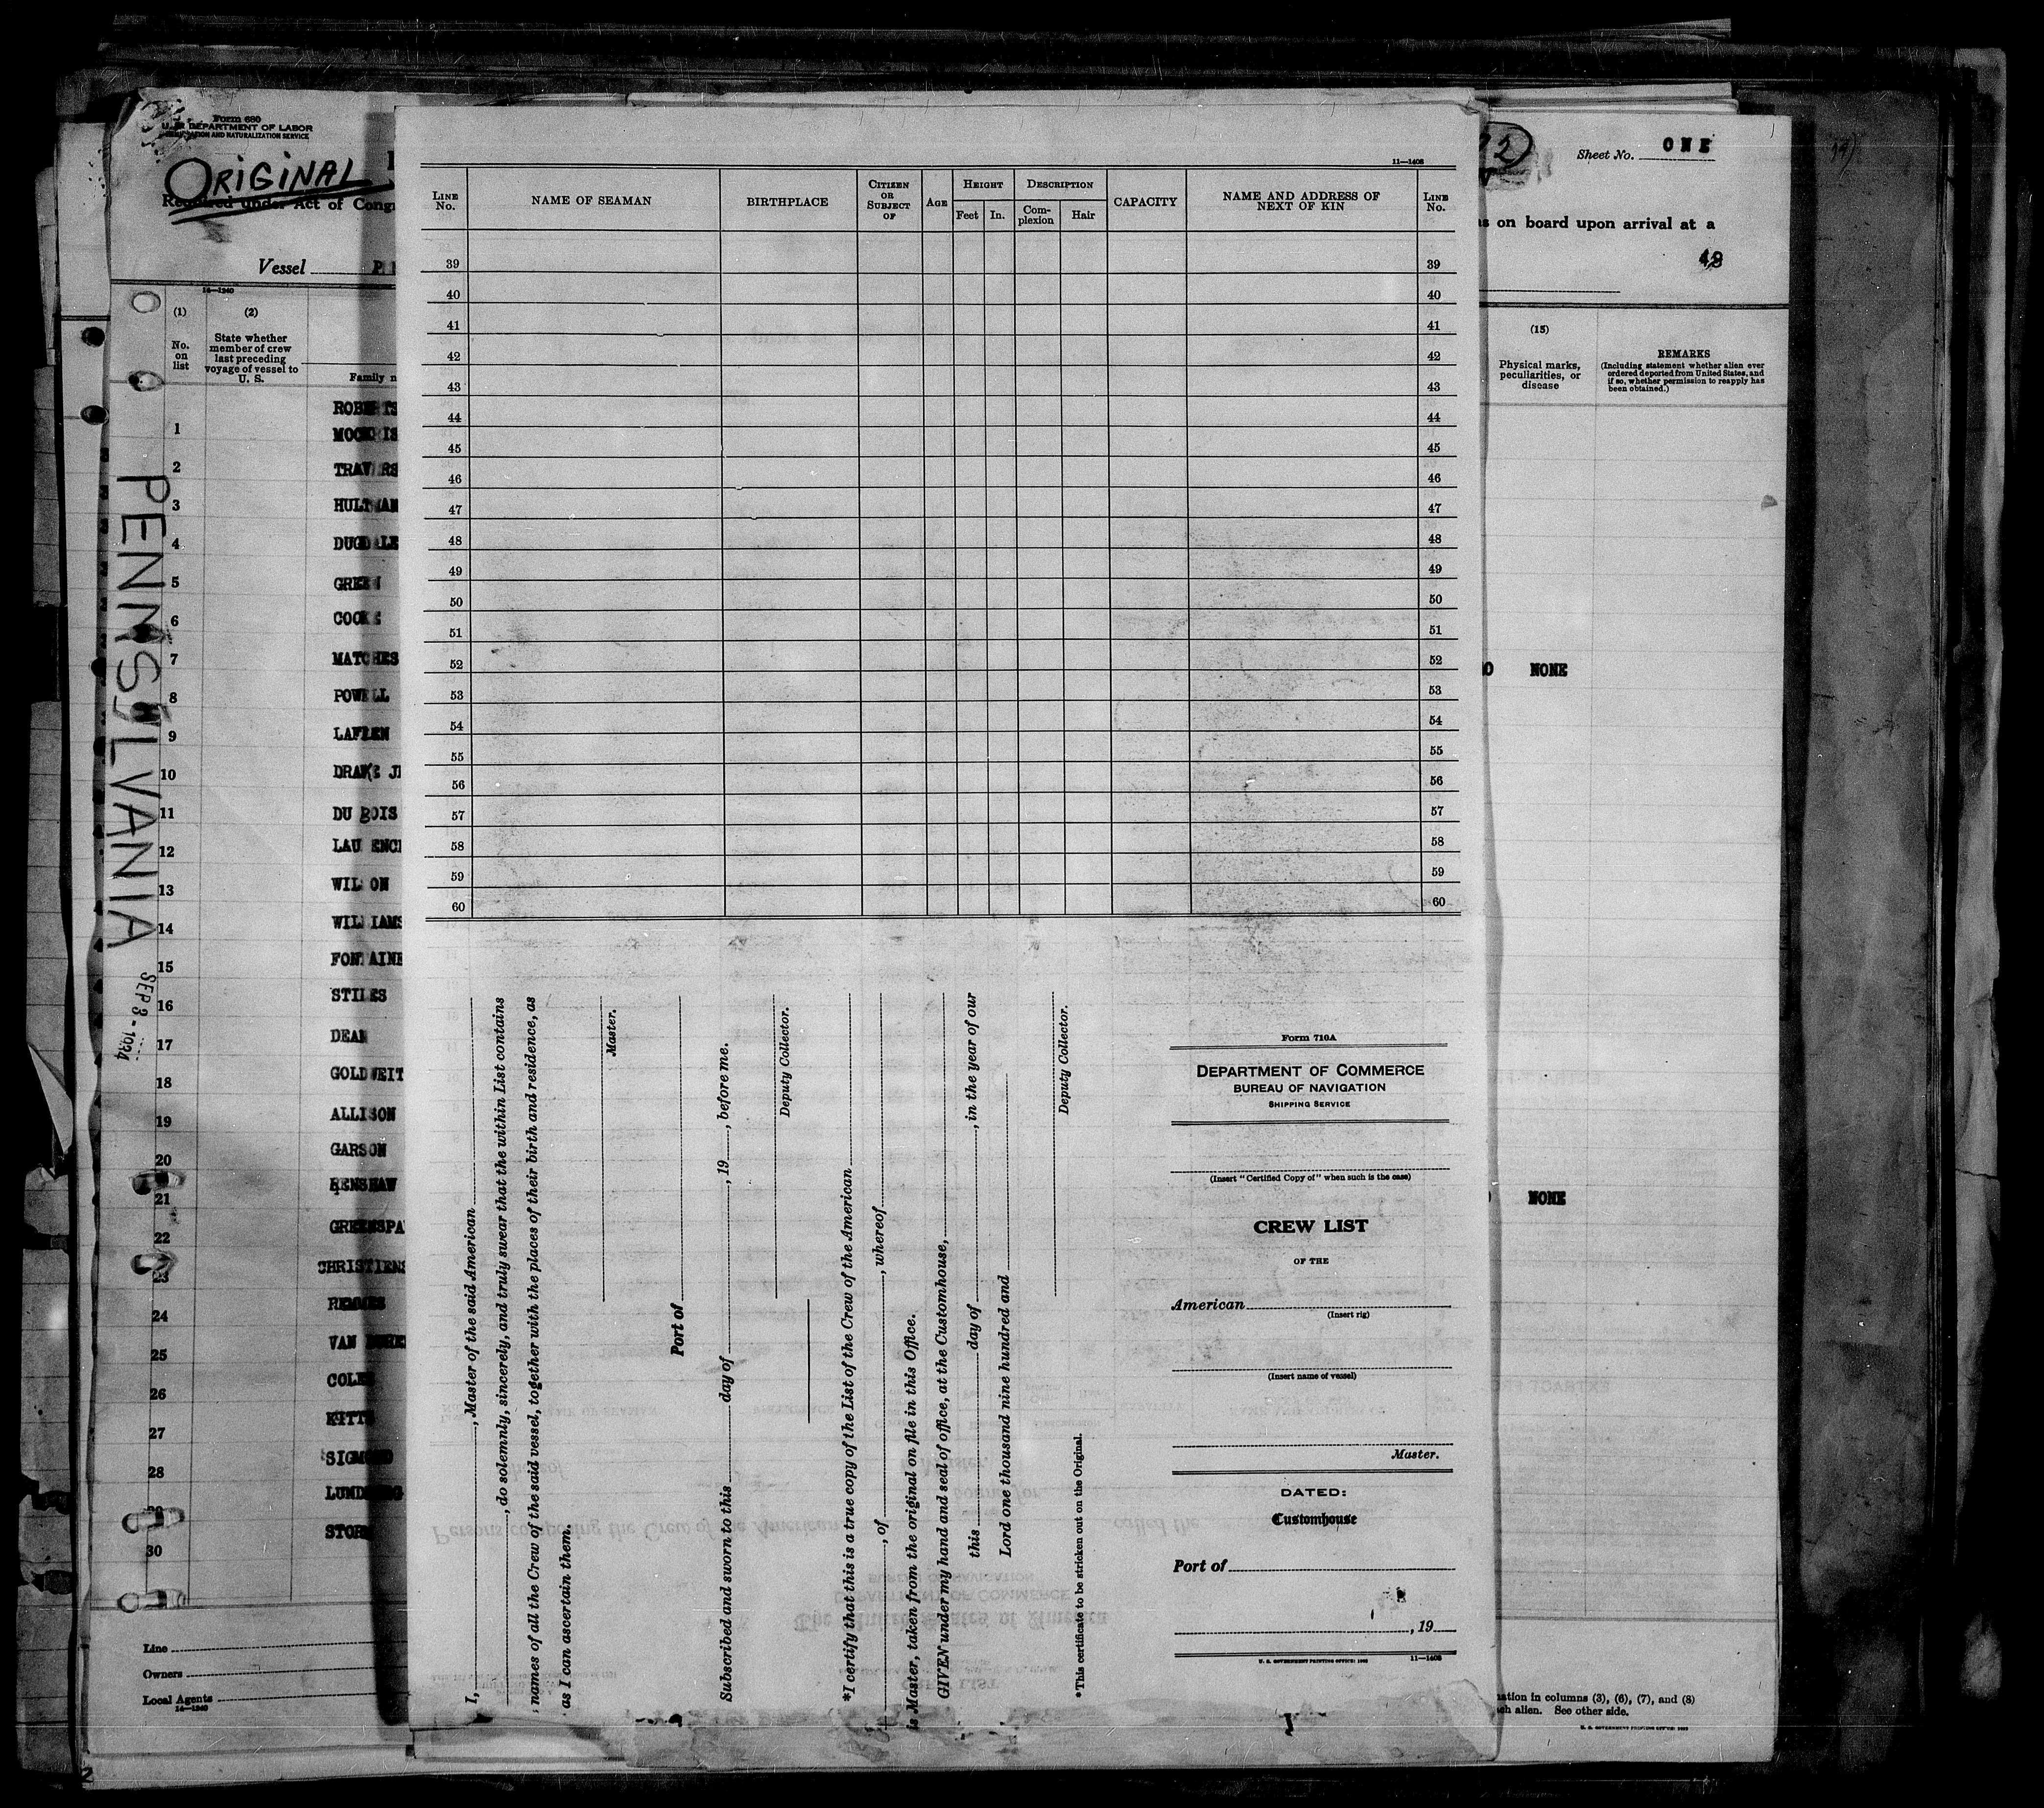 Form 680
U. S. DEPARTMENT OF LABOR
IMMIGRATION AND NATURALIZATION SERVICE
ORIGINAL
Required under Act of Congr
Vessel
14—1240
(1)
No. on list
(2)
State whether member of crew last preceding voyage of vessel to U. S.
Family n
PENNSYLVANIA
SEP 3 - 1934
ROBERTS
1
2 TRAVERS
3 HULTMAN
4 DUGDALE
5 GREEN
6 COOKE
7 MATCHES
8 POWELL
9
10 DRAKE JR
11 DU BOIS
12 LAURENCE
13 WILSON
14 WILLIAMS
15 FONTAINE
16 STILES
17 DEAN
18 GOLDWEIT
19 ALLISON
20 GARSON
21 RENSHAW
22 GREENSPA
23 CHRISTIENS
24 REMMES
25 VAN
26 COLE
27 KITTS
28 SIGMOND
29 LUNDBERG
30 STORM
Line
Owners
Local Agents
14—1240
11—1408
LINE No.
NAME OF SEAMAN
BIRTHPLACE
CITIZEN OR SUBJECT OF
AGE
HEIGHT
Feet
In.
DESCRIPTION
Complexion
Hair
CAPACITY
NAME AND ADDRESS OF NEXT OF KIN
LINE No.
39 39
40 40
41 41
42 42
43 43
44 44
45 45
46 46
47 47
48 48
49 49
50 50
51 51
52 52
53 53
54 54
55 55
56 56
57 57
58 58
59 59
60 60
I, , Master of the said American
, do solemnly, sincerely, and truly swear that the within List contains
names of all the Crew of the said vessel, together with the places of their birth and residence, as
as I can ascertain them.
Master.
Port of
Subscribed and sworn to this day of , 19 , before me.
Deputy Collector.
*I certify that this is a true copy of the List of the Crew of the American
, of , whereof
is Master, taken from the original on file in this Office.
GIVEN under my hand and seal of office, at the Customhouse,
this day of , in the year of our
Lord one thousand nine hundred and
Deputy Collector.
*This certificate to be stricken out on the Original.
Form 710A
DEPARTMENT OF COMMERCE
BUREAU OF NAVIGATION
SHIPPING SERVICE
(Insert "Certified Copy of" when such is the case)
CREW LIST
OF THE
American
(Insert rig)
(Insert name of vessel)
Master.
DATED:
Customhouse
Port of
, 19
U. S. GOVERNMENT PRINTING OFFICE: 11—1408
2
Sheet No. ONE
s on board upon arrival at a
(15)
Physical marks, peculiarities, or disease
REMARKS
(Including statement whether alien ever ordered deported from United States, and if so, whether permission to reapply has been obtained.)
NONE
NONE
ation in columns (3), (6), (7), and (8)
ch alien. See other side.
U. S. GOVERNMENT PRINTING OFFICE: